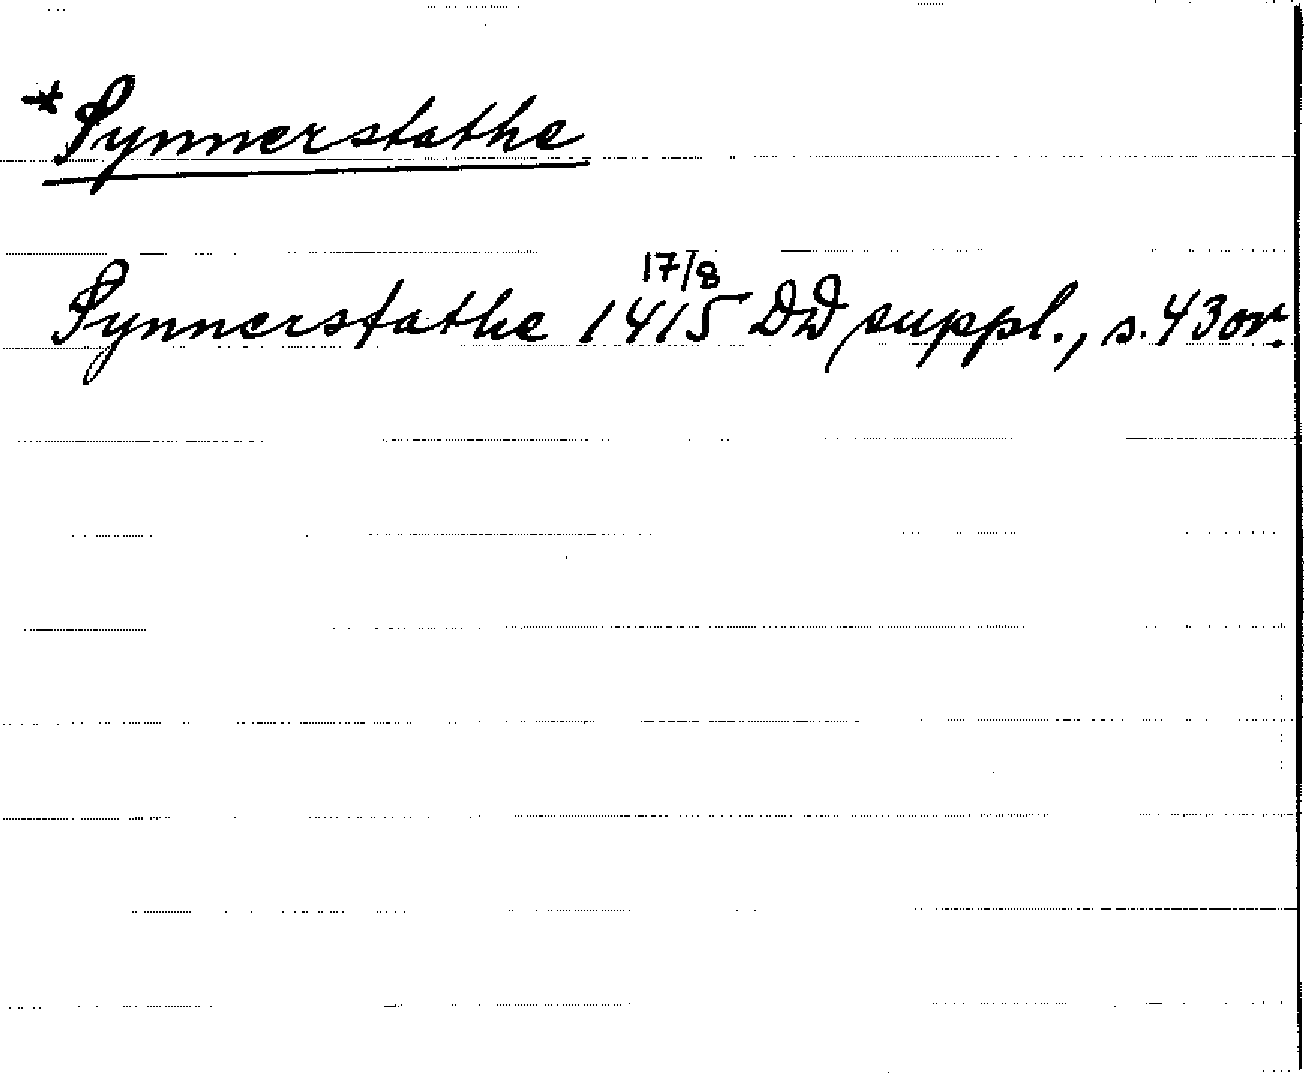 *Synnerstathe
Synnerstathe 1415 17/8 DD suppl., s. 43 or.